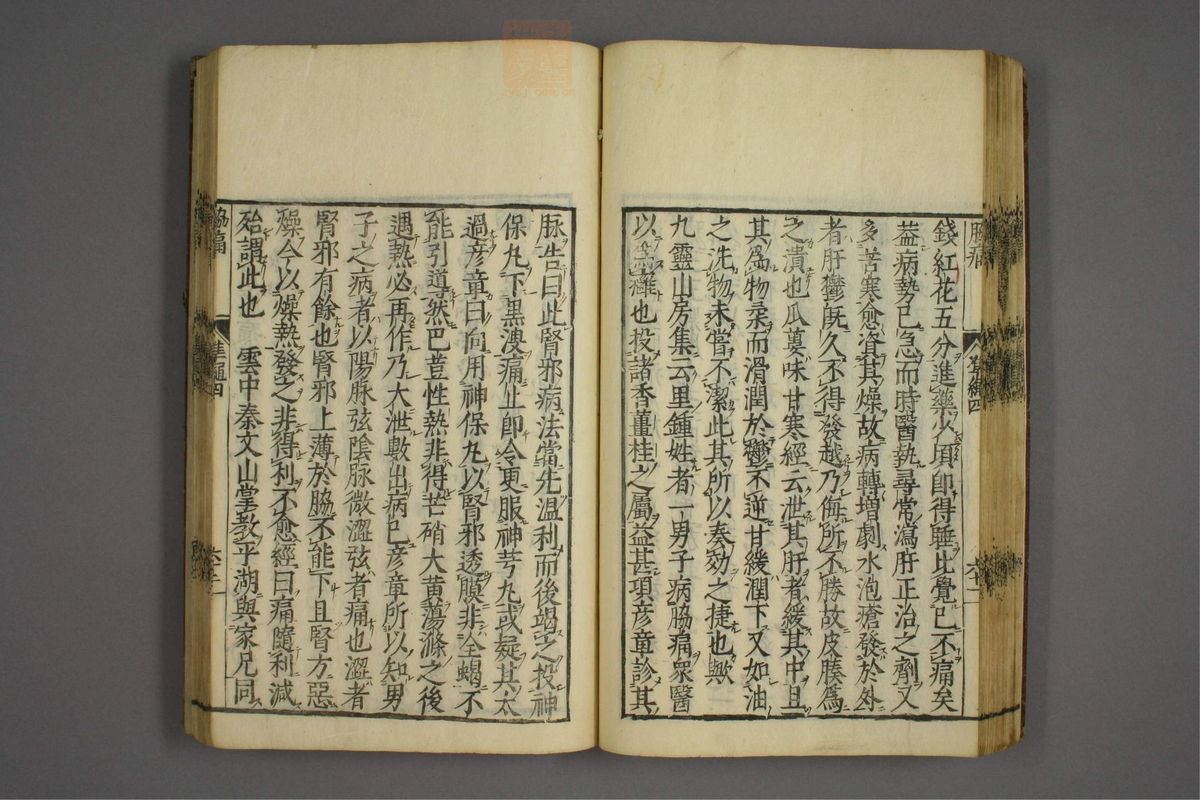 錢紅花五分進藥少頃卽得睡比覺已不痛矣
益病勢已急而時醫執尋常瀉肝正治之劑又
多苦寒愈資其燥故病轉增劇水泡瘡發於外
者肝鬱旣久不得發越乃侮所不勝故皮腠爲
之潰也瓜蔞味甘寒經云泄其肝者緩其中且
其爲物柔而滑潤於鬱不逆甘緩潤下又如油
之洗物未嘗不潔此其所以奏効之捷也歟
九靈山房集云里鍾姓者一男子病脇痛衆醫
以爲癰也投諸香薑桂之屬益甚項彥章診其
脉告曰此腎邪病法當先溫利而後竭之投神
保丸下黒溲痛止卽令更服神芎丸或疑其太
過彥章曰向用神保丸以腎邪透膜非全蝎不
能引導然巴荳性熱非得芒硝大黄蕩滌之後
遇熱必再作乃大泄數出病已彥章所以知男
子之病者以陽脉弦陰脉微澀弦者痛也澀者
腎邪有餘也腎邪上薄於脇不能下且腎方惡
燥今以燥熱發之非得利不愈經曰痛隨利減
殆謂此也　雲中秦文山掌教平湖與家兄同
脇痛
準繩四
六十二